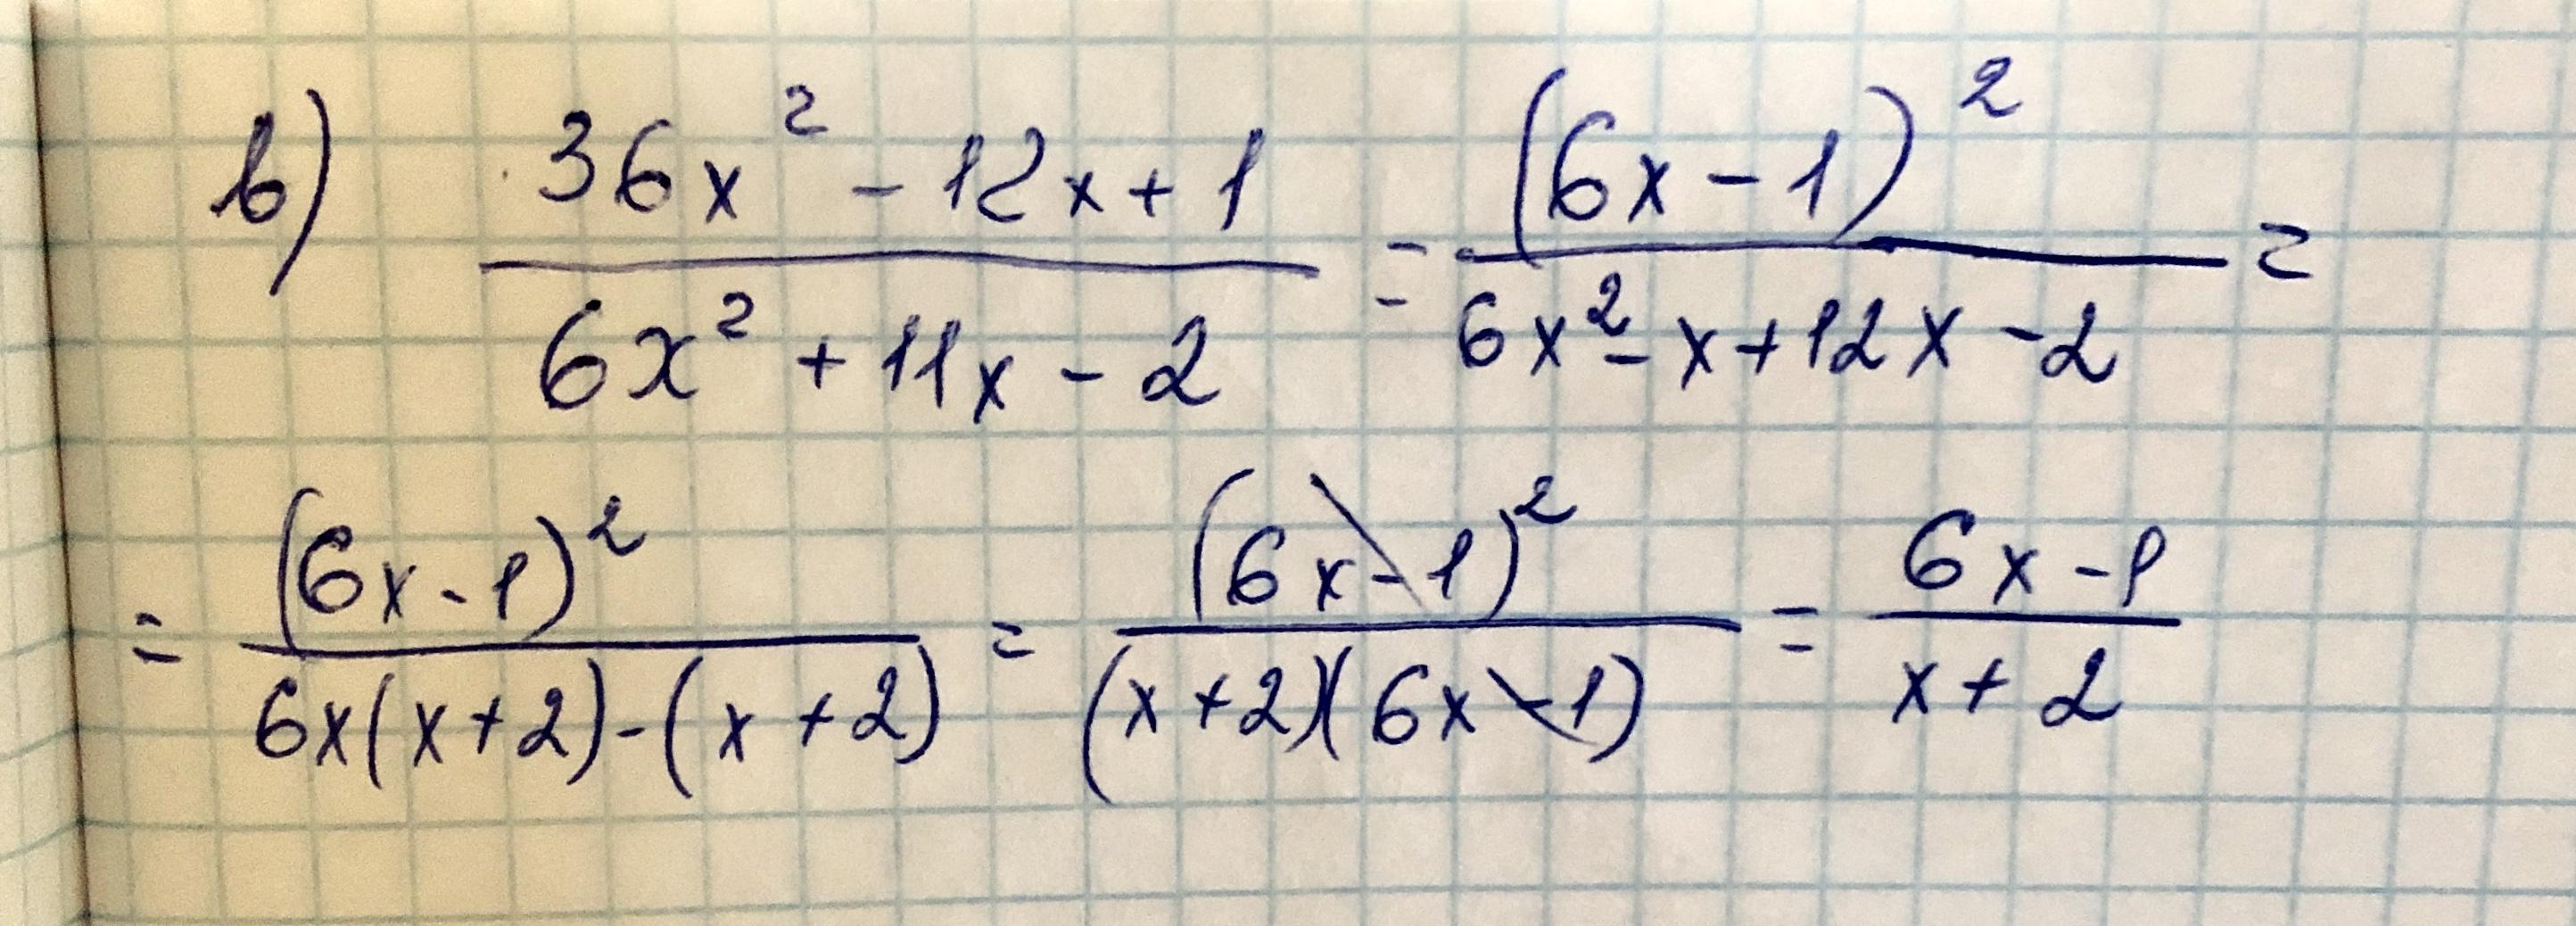 в) (36x² - 12x + 1)/(6x² + 11x - 2) = (6x - 1)²/(6x² - x + 12x - 2) =
= (6x - 1)²/(6x(x + 2) - (x + 2)) = (6x - 1)²/((x + 2)(6x - 1)) = (6x - 1)/(x + 2)